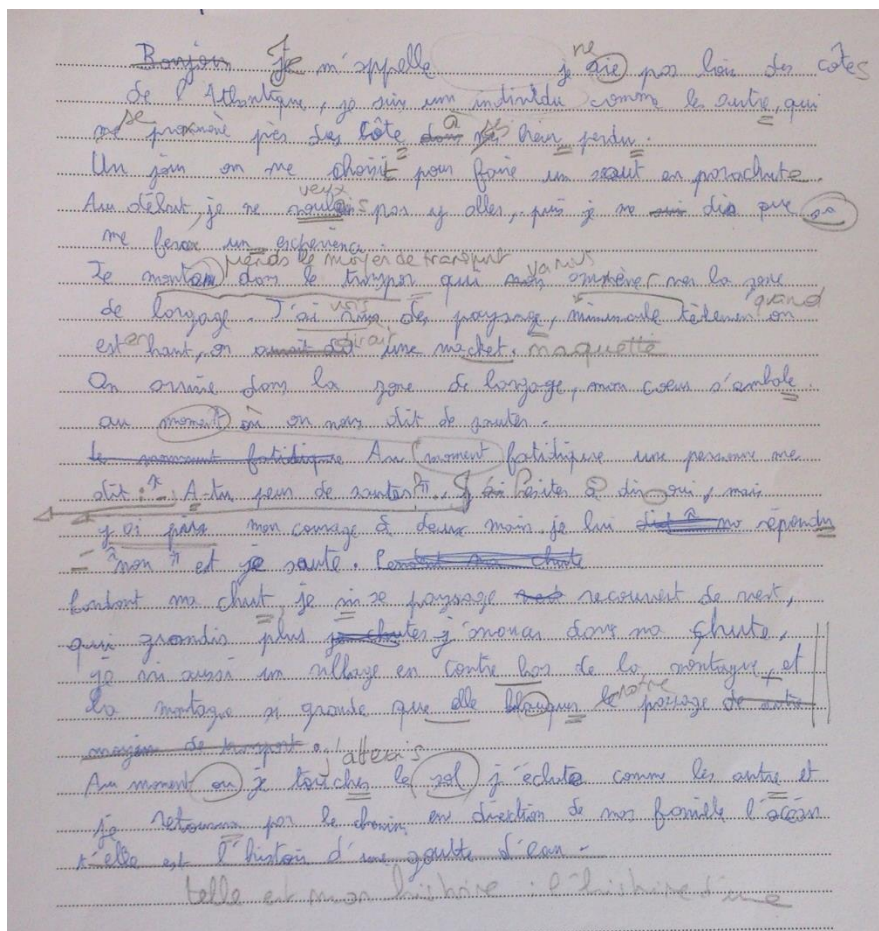 Bonjou Je m'appelle je ne vie pas loin des côtes
de l'Atlantique, je suis un individu comme les autre, qui
se promène près des côte dans à ses heur perdu.
Un jour on me choisit pour faire un saut en parachute.
Au début, je ne voulais veux pas y aller, puis je me suis dis que sa
me feras un expérience.
prends le moyen de transport
Je montais dans le transpor qui nous va nous emmèner vers la zone
de largage. J'ai vus vois des paysage, minuscule tèlemen quand on
est en haut, on aurait dit dirait une macket. maquette
On arrive dans la zone de largage, mon coeur s'embale
au moment où on nous dit de sauter.
le moment fatidique Au moment fatidique une personne me
dit : "A-tu peur de sauter". J'ai hésiter à dire oui, mais
j'ai pris mon courage à deux main je lui dit no répondu
- "non" et je saute. Pendant ma chute
Pendant ma chut, je vi se paysage recouvert de vert,
qui grandis plus je chutes j'avancas dans ma chute,
je vi aussi un village en contre bas de la montagne, et
la montagne si grande que elle bloques le notre paysage de autre
moyen de transport. j'atteris
Au moment ou je touches le sol j'échute comme les autre et
je retourna par le chemin en direction de nos famille l'océan
t'elle est l'histoir d'une goutte d'eau.
telle est mon histoire : l'histoire d'une